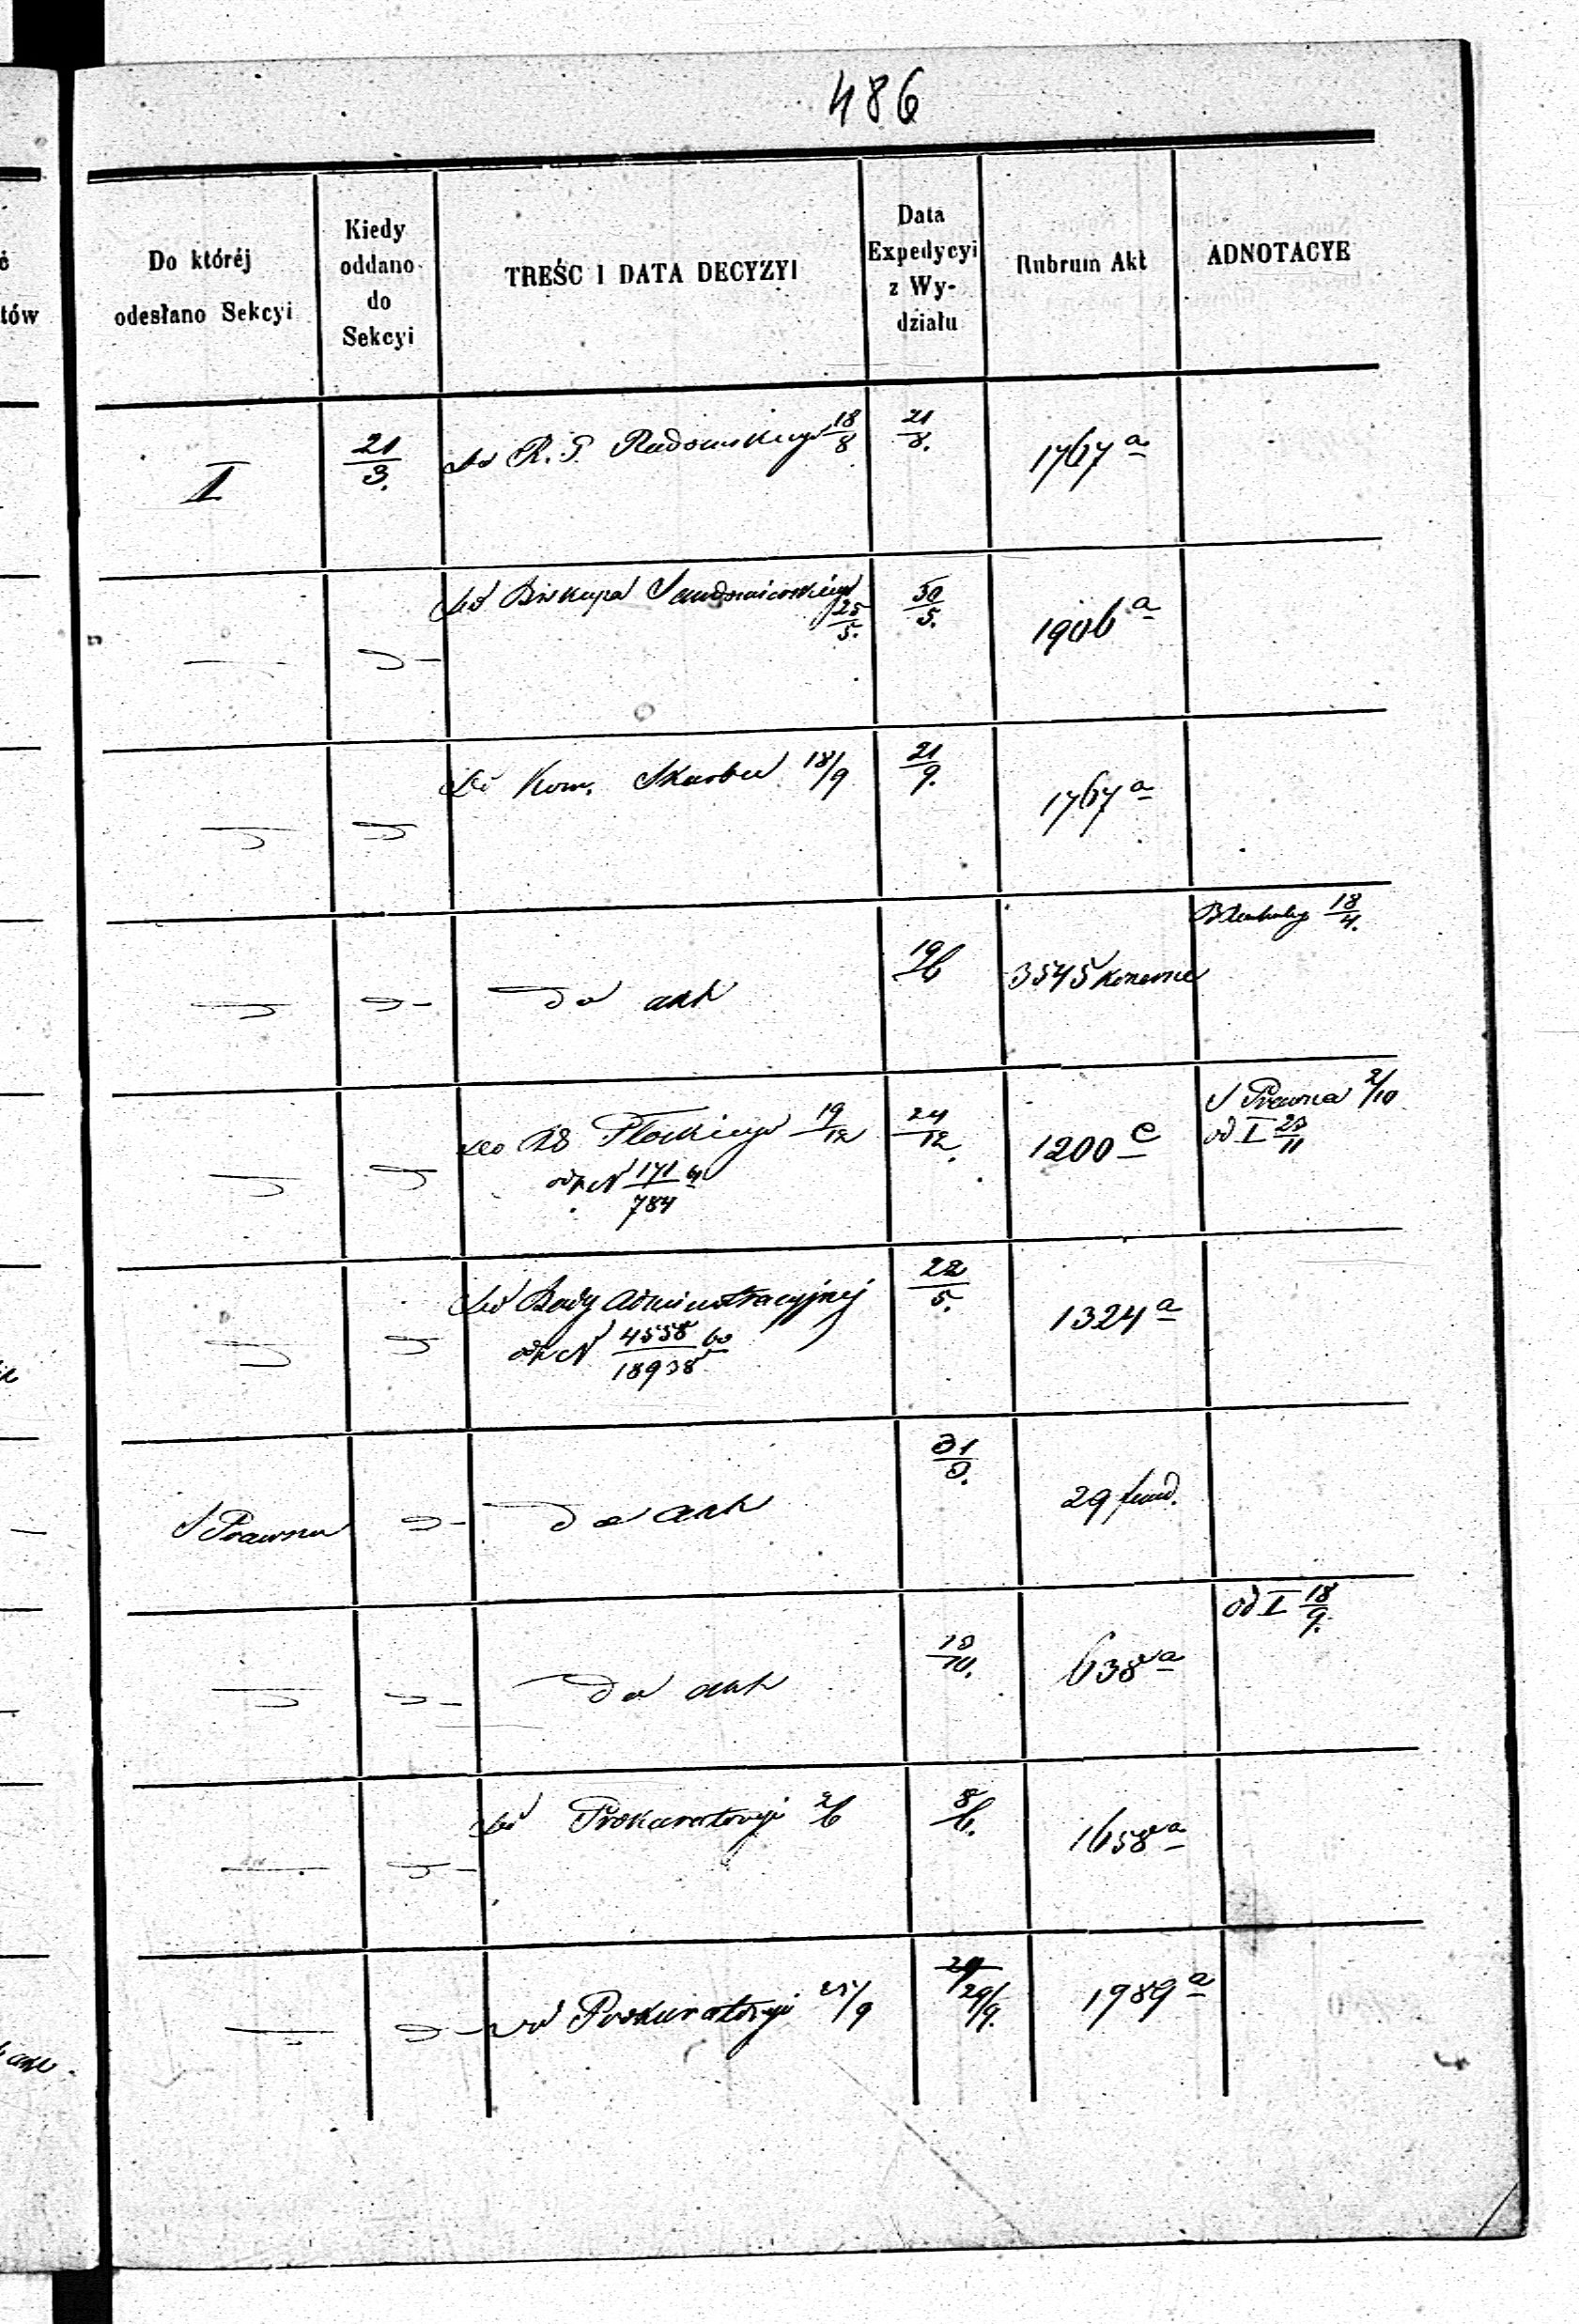 486
Do któréj
odesłano Sekcyi
Kiedy
oddano
do
Sekcyi
TREŚC I DATA DECYZYI
Data
Expedycyi
z Wy-
działu
Rubrum Akt
ADNOTACYE
I
21/3.
Do R. G. Radomskiego 18/8
21/8.
1767 a
Do Biskupa Sandomierskiego
25/5.
30/5.
1906 a
Do Kom. Skarbu 18/9
21/9.
1767 a
do akt
19/6
3545
18/4.
Płockiego 19/12
odp N 171/784
24/12.
1200 e
S Prawna 2/10
od I 23/11
Do Rady Administracyjnej
odp N 4558/18938
22/5.
1324 a
S Prawna
do akt
31/3.
29 fund.
do akt
638 a
od I 18/9.
Do Prokuratoryi 2/6
8/6.
1658 a
Do Prokuratoryi 25/9
29/9.
1989 a